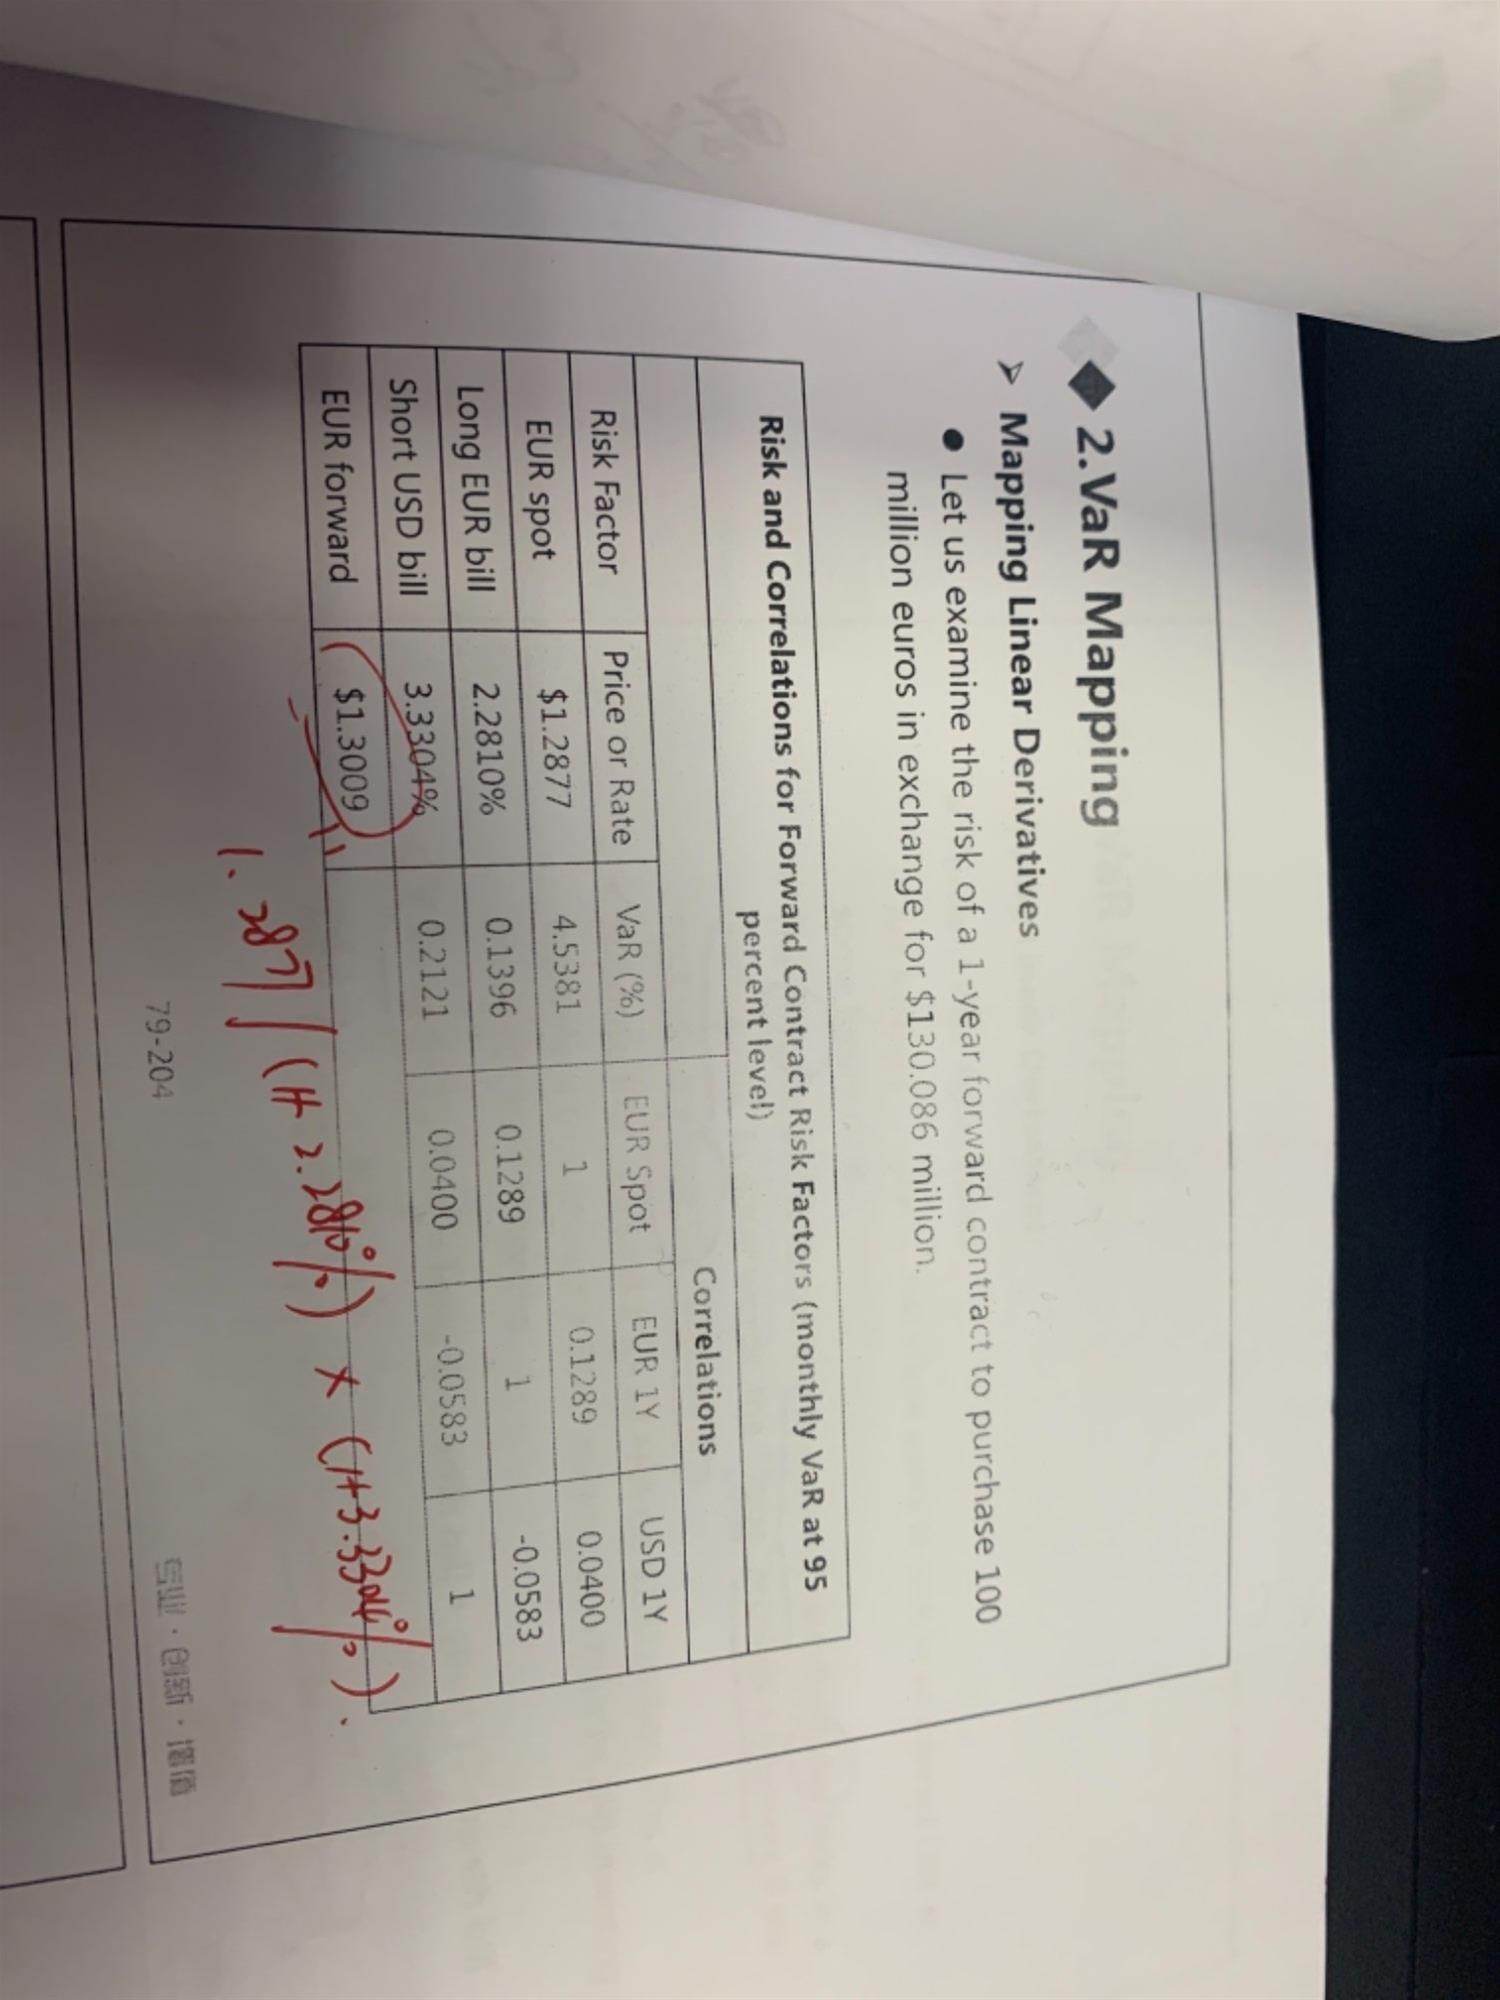 2.VaR Mapping
➢ Mapping Linear Derivatives
● Let us examine the risk of a 1-year forward contract to purchase 100
million euros in exchange for $130.086 million.
Risk and Correlations for Forward Contract Risk Factors (monthly VaR at 95
percent level)
Correlations
Risk Factor Price or Rate VaR (%) EUR Spot EUR 1Y USD 1Y
EUR spot $1.2877 4.5381 1 0.1289 0.0400
Long EUR bill 2.2810% 0.1396 0.1289 1 -0.0583
Short USD bill 3.3304% 0.2121 0.0400 -0.0583 1
EUR forward $1.3009
1.2877 / (1+2.2810%) × (1+3.3304%).
79-204
创新